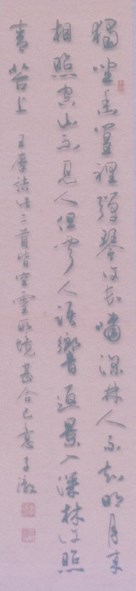 獨坐幽篁裡彈琴復長嘯深林人不知明月來
相照空山不見人但聞人語響返景入深林復照
青苔上 王摩詰詩 二首皆空靈